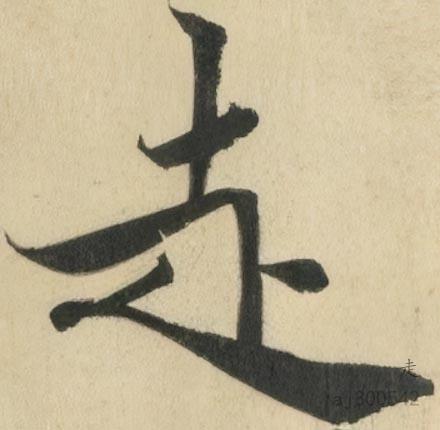 走
走
aj300542